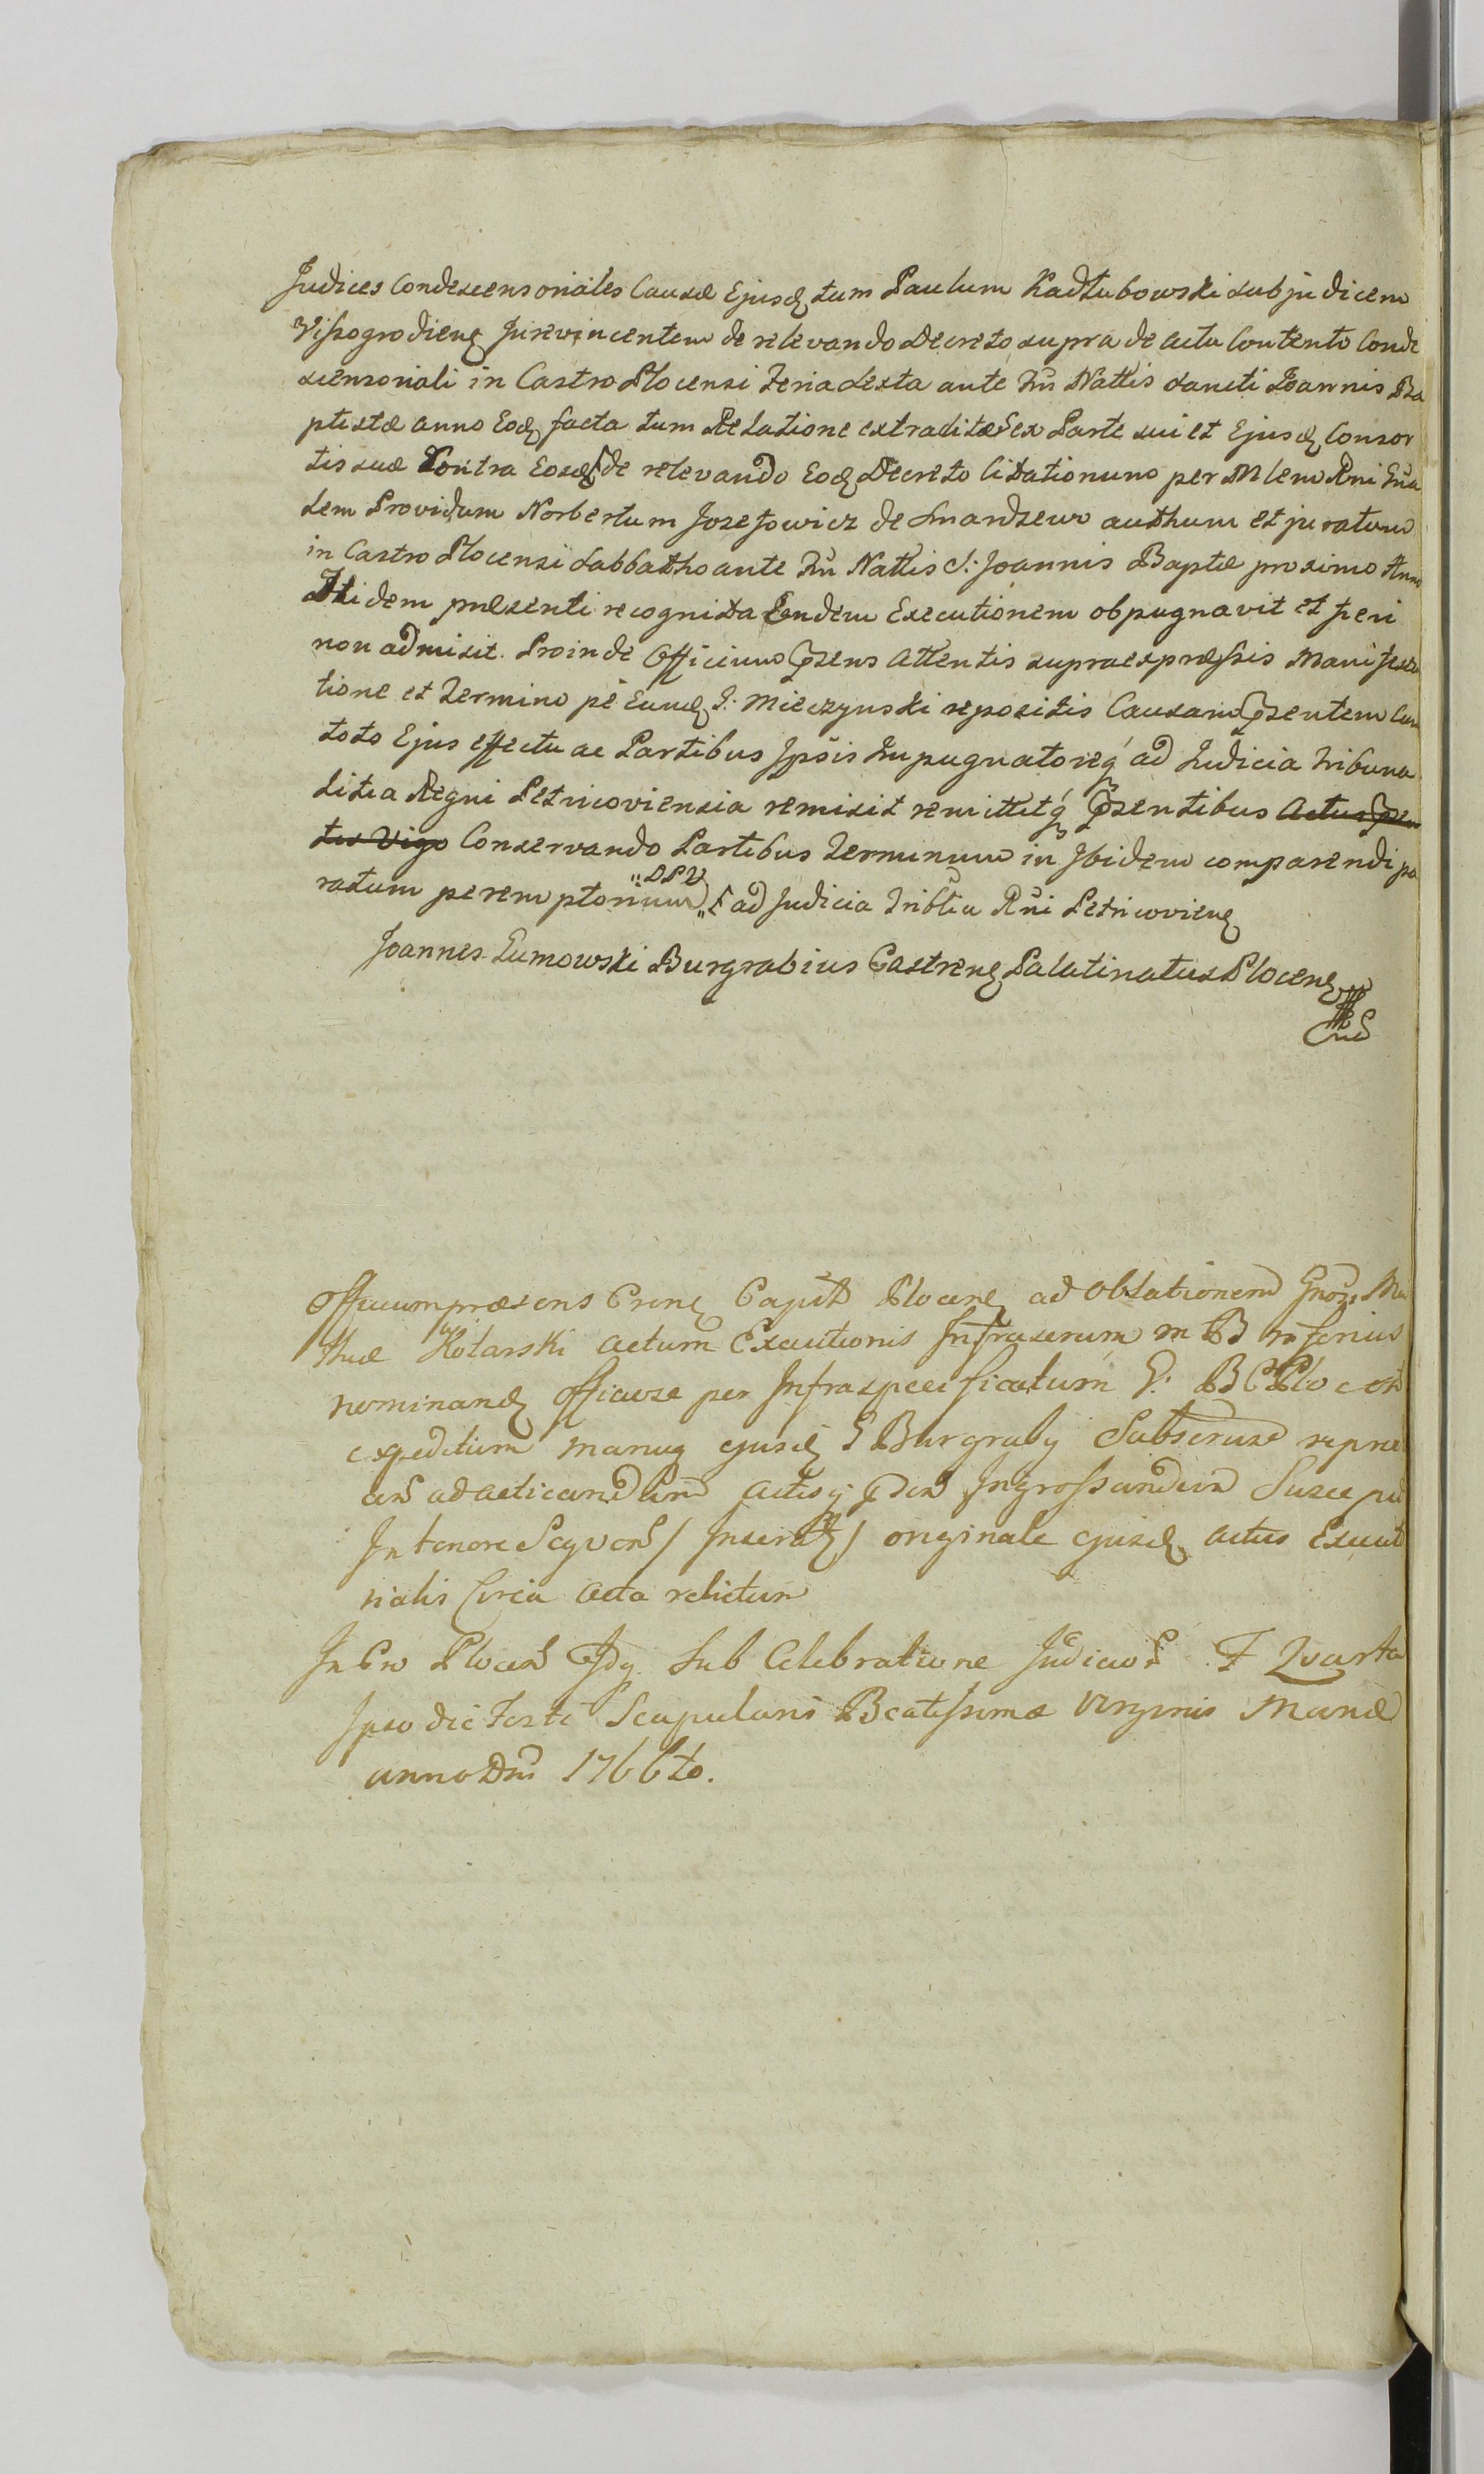 Judices Condescensoriales Causæ Ejusdę tum Paulum Kadłubowski subjudicem
Wissogrodienę Jurevincentem de relevando Decreto supra de actu Contento Conde
scensoriali in Castro Plocensi Feria Sexta ante Frũ Nattis Sancti Joannis Ba
ptistæ anno Eodę facta tum Relatione extraditæ ex Parte sui et Ejusdę Consor
tis suæ Contra Eosdę de relevando Eodę Decreto Citationum per Mlem Rni
dem Providum Norbertum Jozefowicz de authum et juratum
in Castro Plocensi Sabbatho ante Frũ Nattis S: Joannis Baptæ proximo Anno
Itidem præsenti recognita Eandem Executionem obpugnavit et fieri
non admisit. Proinde Officium Psens Attentis supraexpressis Manifesta
tione et Termino pė Eumdę G: Mieczynski repositis Causam Psentem Cum
toto Ejus effectu ac Partibus Ipsis Impugnatorięq ad Judicia Tribuna
litia Regni Petricoviensia remisit remittitq Psentibus Actus Psen
tis Vigo Conservando Partibus Terminum in Ibidem comparendi pa
ratum peremptorium ad Judicia Tribtia Rni Petricovienę
Joannes Łumowski Burgrabius Castrenę Palatinatus Plocenę

Officium præsens Crenę Capit Plocenę ad Oblationem Gnosi Ma
thiæ Kotarski actum Executionis Infrascrum in B inferius
nominandę Officiose per Infraspecificatum G: B C Plocen
expeditum manuq ejusdę G Burgraby Subscrunt repræ
ad acticandum actisq Psen Ingrossandum Suscepit
In tenore Seqven / Inseratę / originale ejusdę actus Execut
rialis Circa acta relictum
In Cro Plocen Sub Celebratione Judicior F Qvarta
Ipso die Festi Scapularis Beatissimæ Virginis Mariæ
anno Dni 1766to.